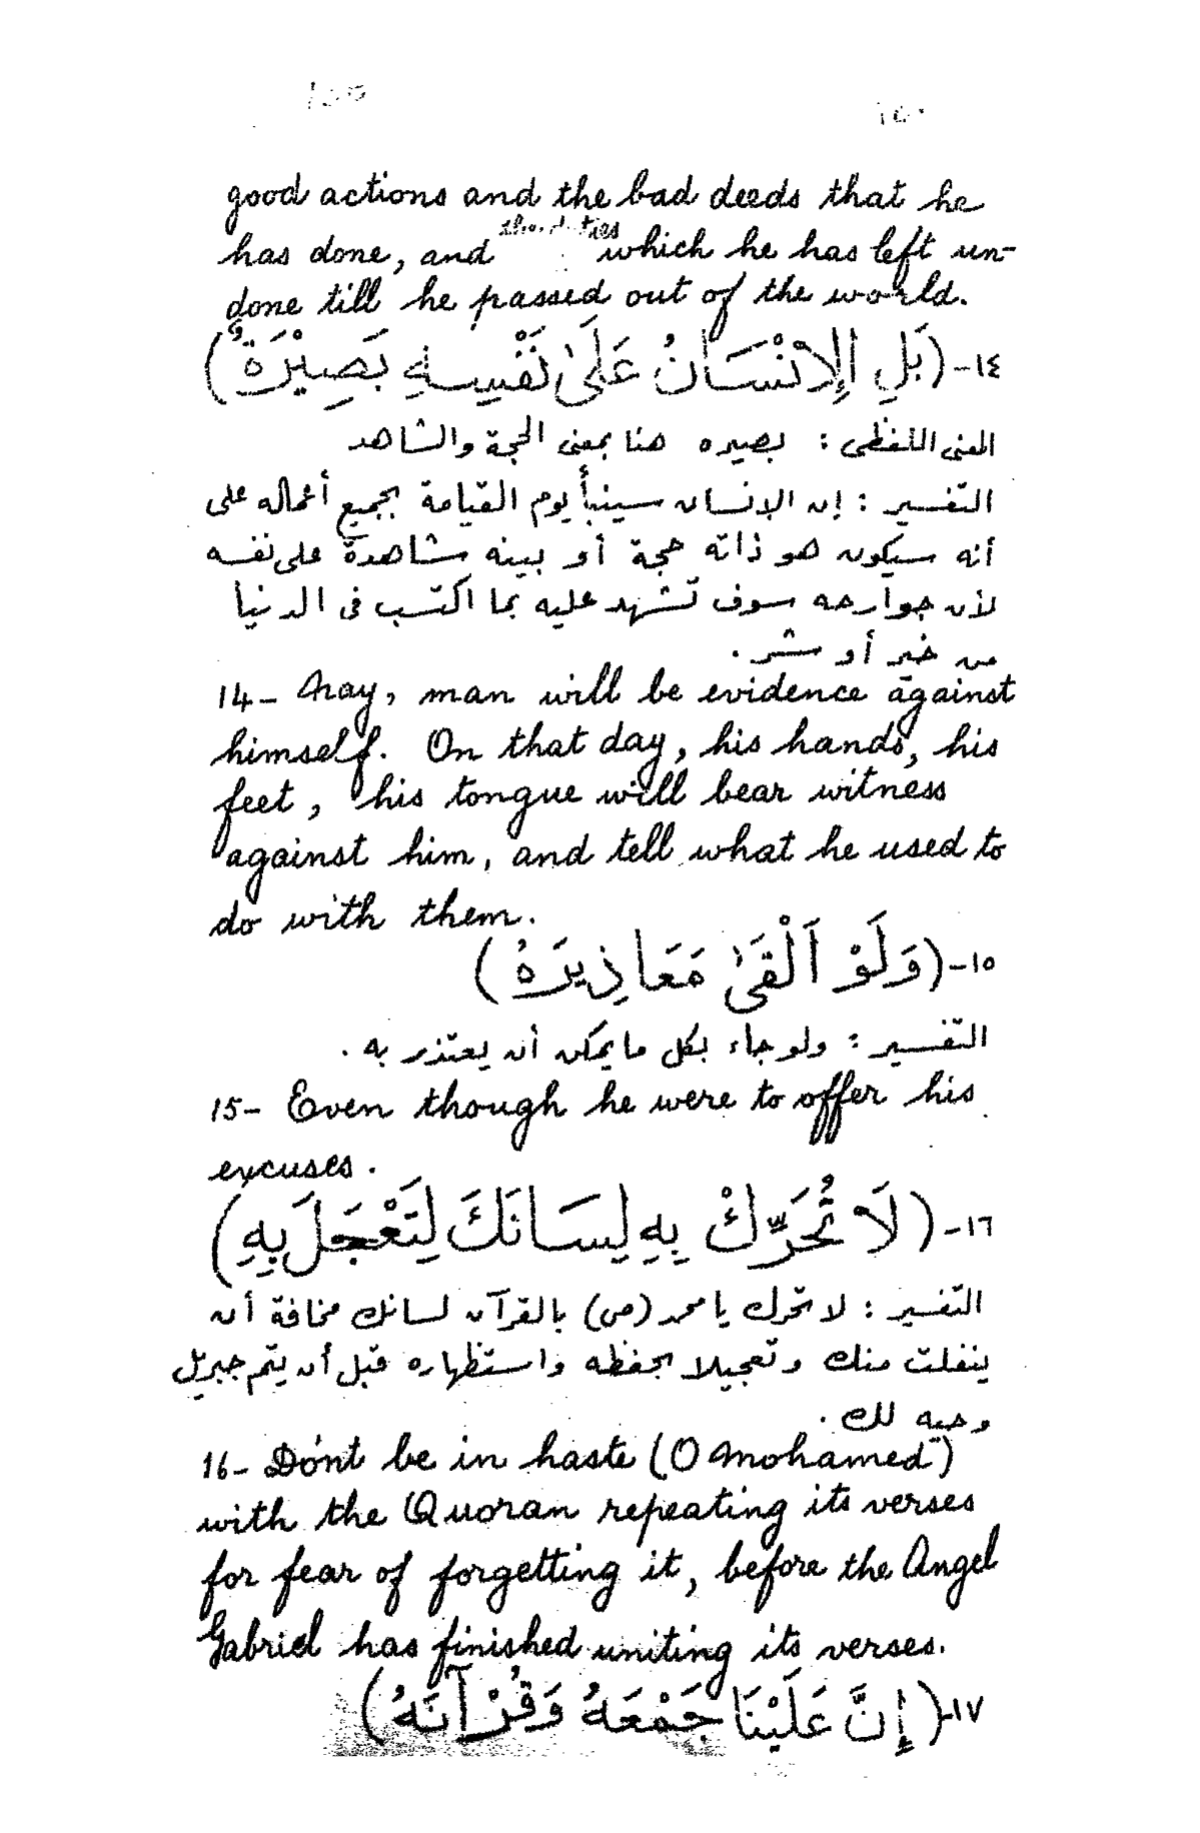 good actions and the bad deeds that he
has done, and the duties which he has left un-
done till he passed out of the world.
١٤- (بَلِ الإِنْسَانُ عَلَىٰ نَفْسِهِ بَصِيْرَةٌ)
المعنى اللفظى : بصيره هنا بمعنى الحجة والشاهد
التفسير : إن الإنسان سينبأ يوم القيامة بجميع أعماله على
أنه سيكون هو ذاته حجة أو بينه شاهدة على نفسه
لأن جوارحه سوف تشهد عليه بما اكتسب فى الدنيا
من خير أو شر .
14- Nay, man will be evidence against
himself. On that day, his hands, his
feet, his tongue will bear witness
against him, and tell what he used to
do with them.
١٥- (وَلَوْ اَلْقَىٰ مَعَاذِيرَهُ)
التفسير : ولو جاء بكل ما يمكن أن يعتذر به .
15- Even though he were to offer his
excuses.
١٦- (لَا تُحَرِّكْ بِهِ لِسَانَكَ لِتَعْجَلَ بِهِ)
التفسير : لا تحرك يا محمد (ص) بالقرآن لسانك مخافة أن
ينفلت منك وتعجيلا بحفظه واستظهاره قبل أن يتم جبريل
وحيه لك .
16- Don't be in haste (O Mohamed)
with the Quoran repeating its verses
for fear of forgetting it, before the Angel
Gabriel has finished uniting its verses.
١٧- (إِنَّ عَلَيْنَا جَمْعَهُ وَقُرْآنَهُ)